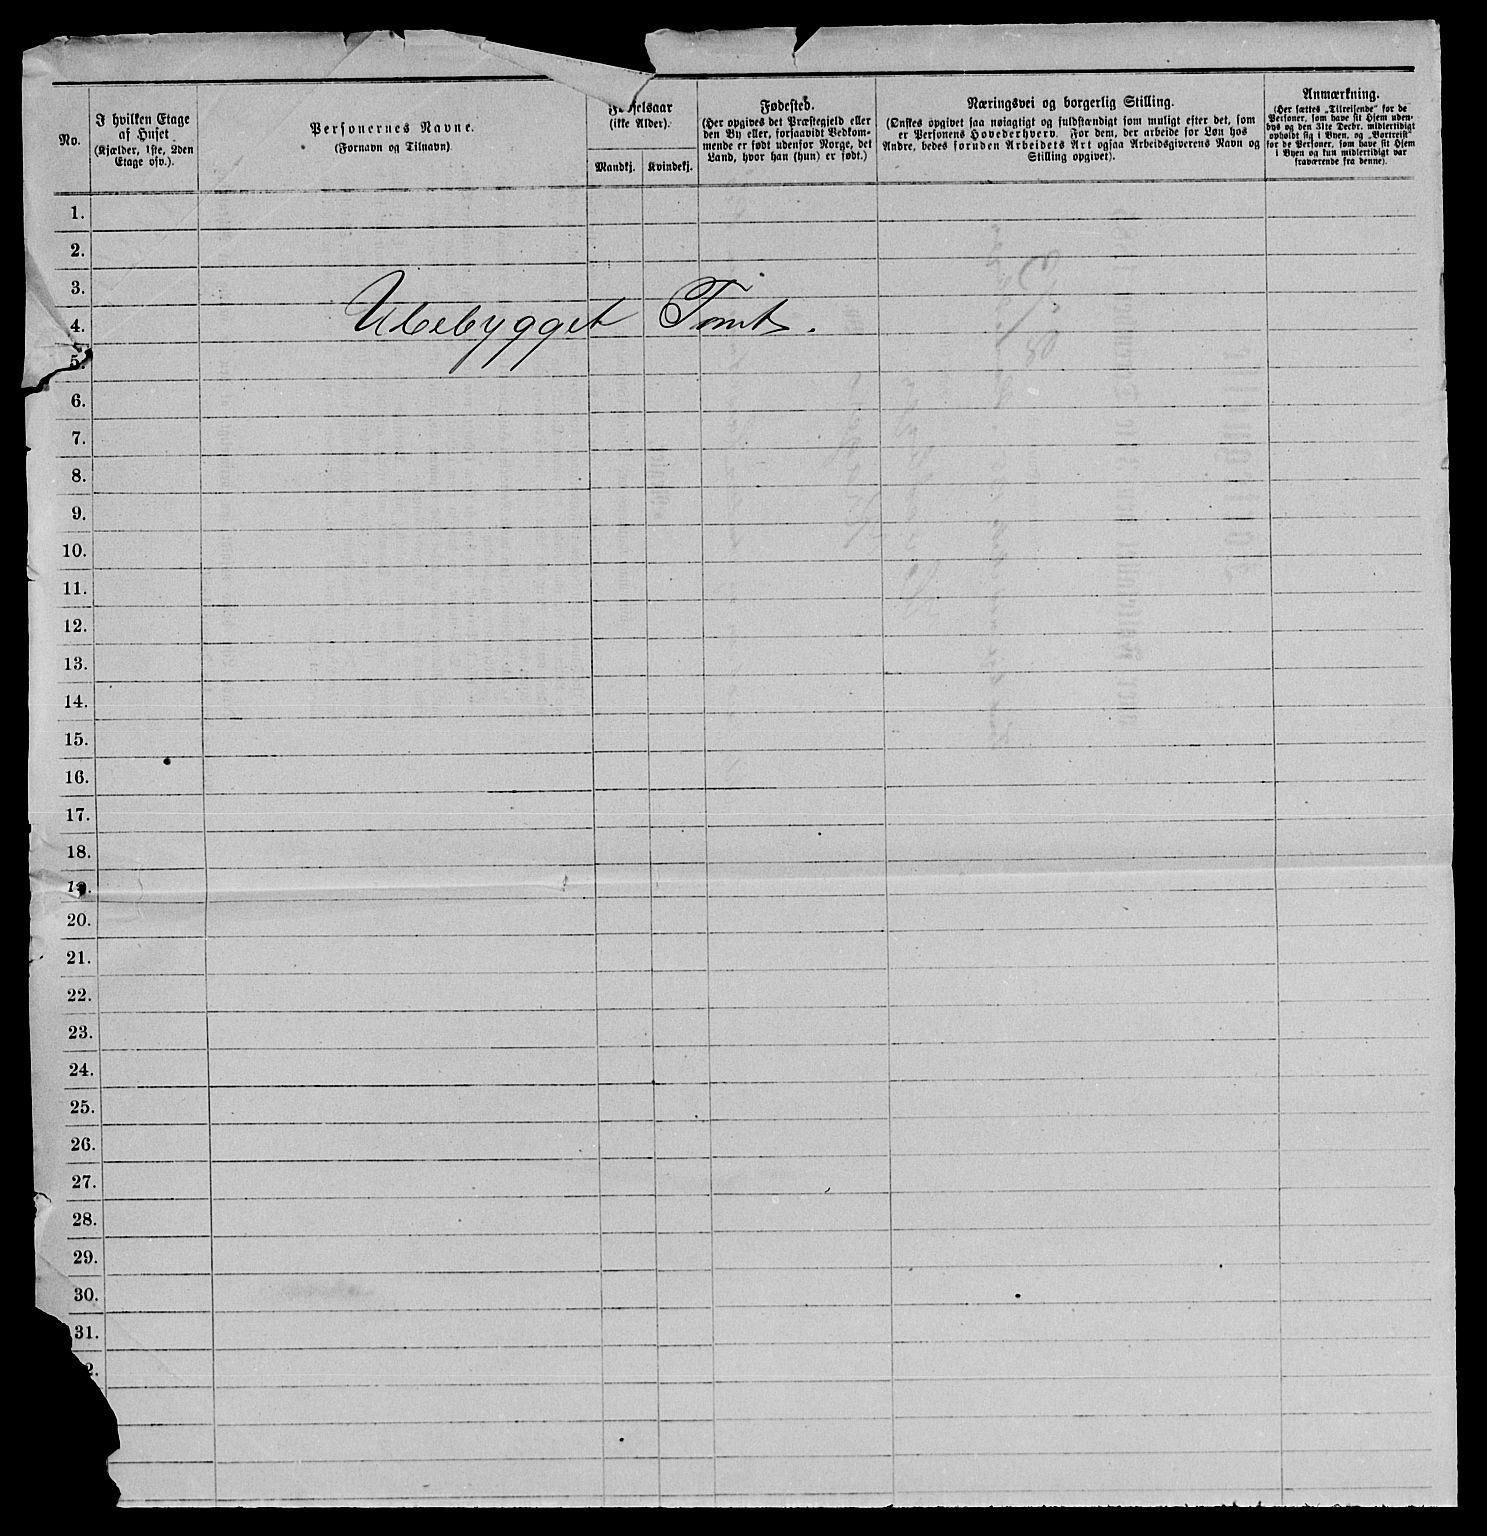 No.
I hvilken Etage
af Huset
(Kjælder, 1ste, 2den
Etage osv.).
Personernes Navne.
(Fornavn og Tilnavn)
Fødselsaar
(ikke Alder).
Mandkj.
Kvindekj.
Fødested.
(Her opgives det Præstegjeld eller
den By eller, forsaavidt Vedkom-
mende er født udenfor Norge, det
Land, hvor han (hun) er født.)
Næringsvei og borgerlig Stilling.
(Ønskes opgivet saa nøiagtigt og fuldstændigt som muligt efter det, som
er Personens Hovederhverv. For dem, der arbeide for Løn hos
Andre, bedes foruden Arbeidets Art ogsaa Arbeidsgiverens Navn og
Stilling opgivet).
Anmærkning.
(Her sættes „Tilreisende" for de
Personer, som have sit Hjem uden-
bys og den 31te Decbr. midlertidigt
opholdt sig i Byen, og „Bortreist"
for de Personer, som have sit Hjem
i Byen og kun midlertidigt var
fraværende fra denne).
1.
2.
3.
4.
Ubebygget Tomt.
5.
6.
7.
8.
9.
10.
11.
12.
13.
14.
15.
16.
17.
18.
19.
20.
21.
22.
23.
24.
25.
26.
27.
28.
29.
30.
31.
2.